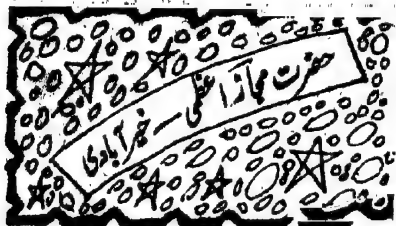 حضرت مجاز اعظمی — خیرآبادی